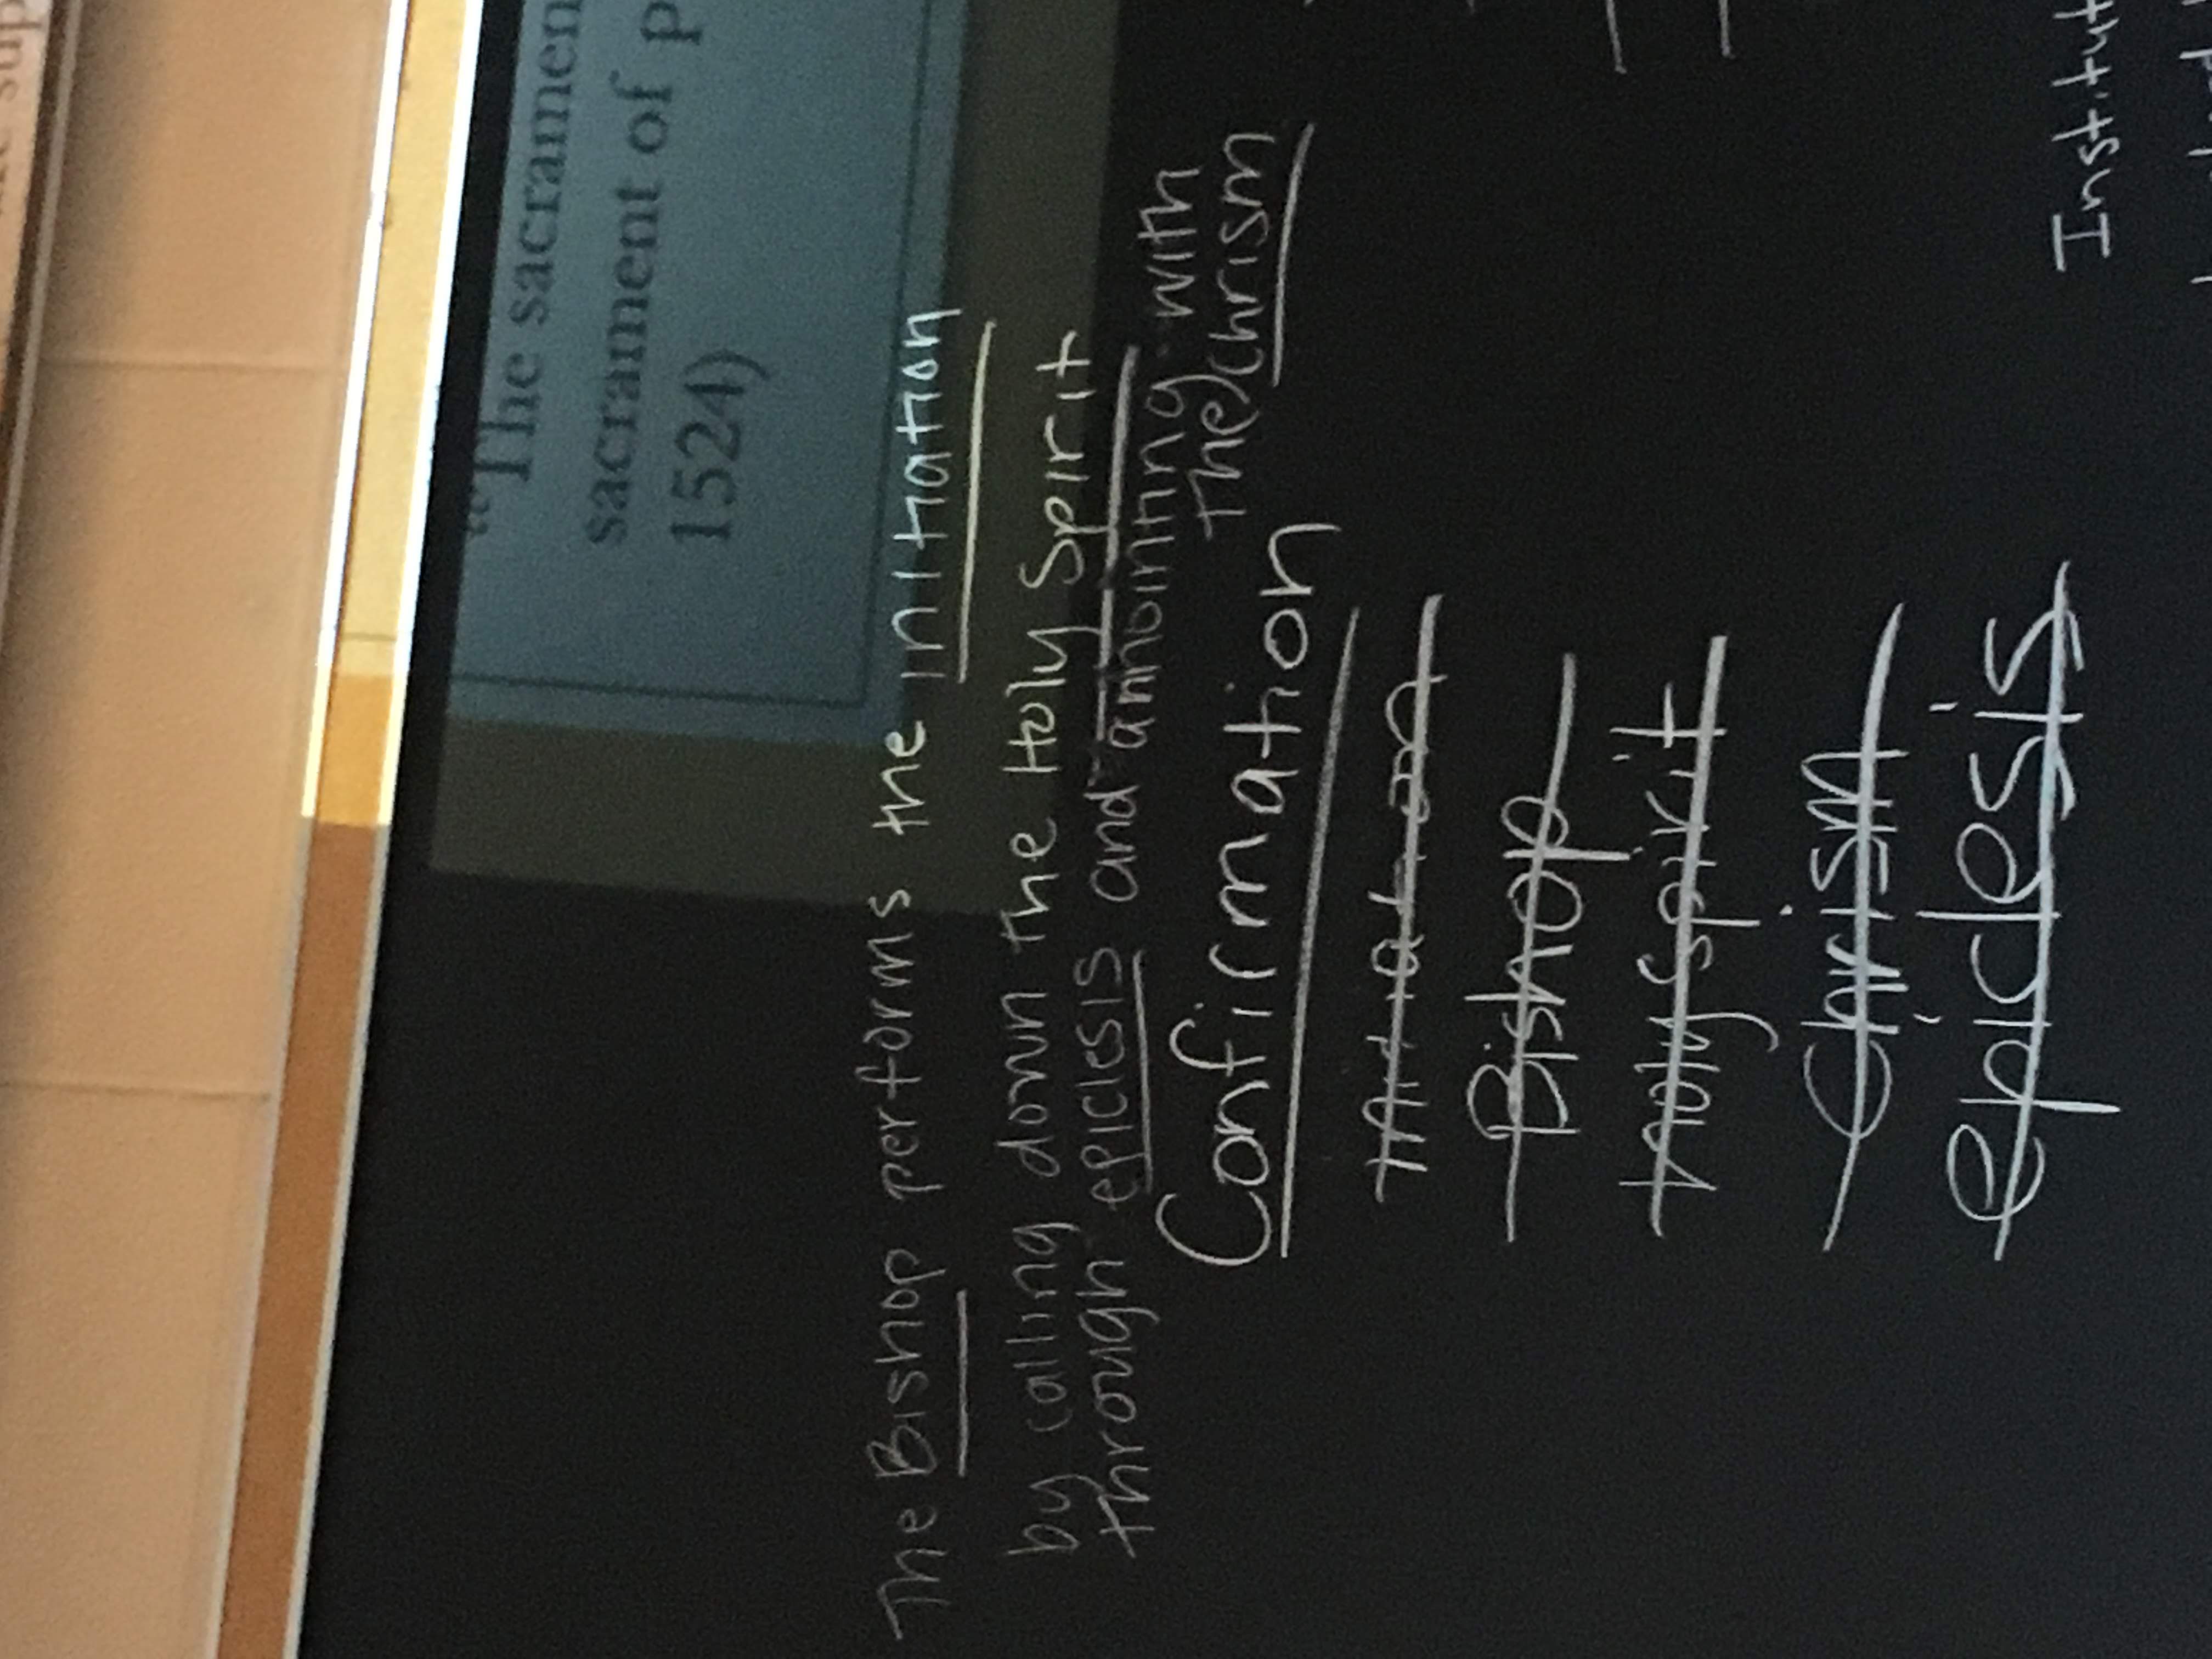 "The sacramen
sacrament of p
1524)
The Bishop performs the initation
by calling down the Holy Spirit
through epiclesis and annointing with
the chrism
Confirmation
Initiation
Bishop
Holy Spirit
Chrism
epiclesis
Institut